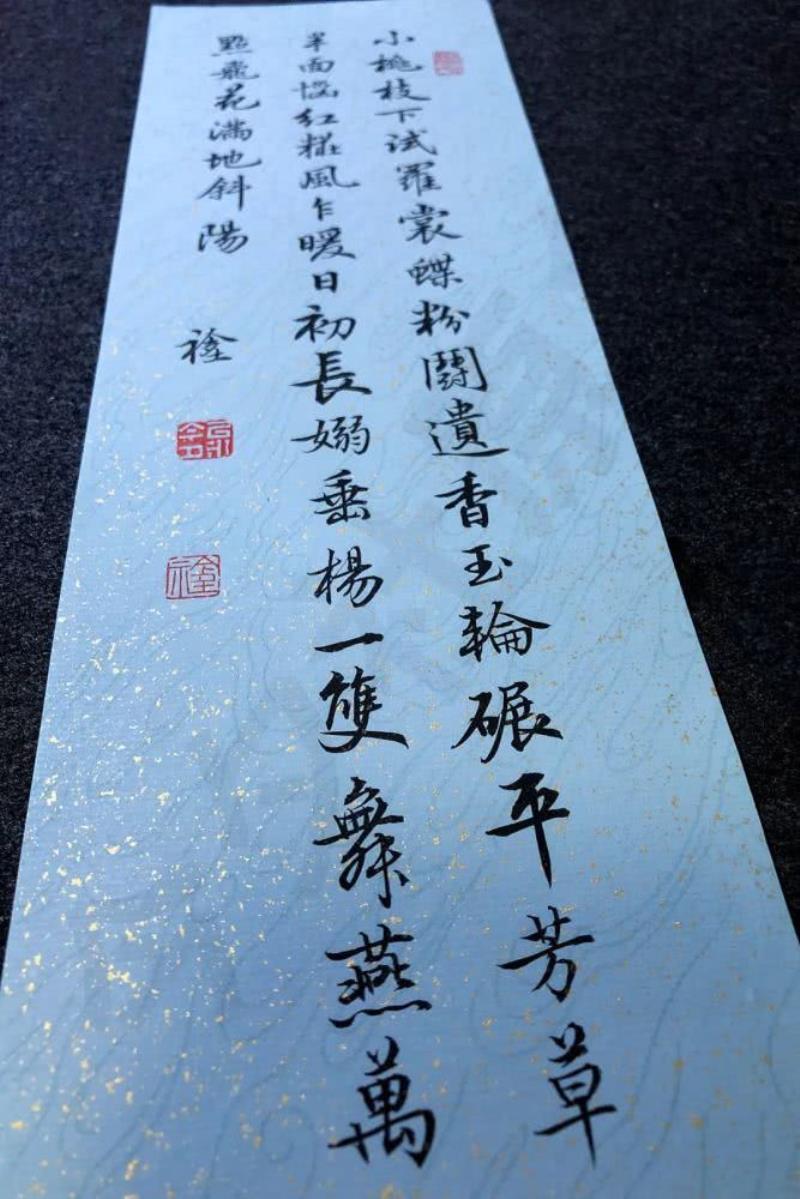 小桃枝下试羅裳蝶粉鬪遺香玉輪碾平芳草
半面惱红糚風乍暖日初長嫋垂楊一雙舞燕萬
點飛花滿地斜陽